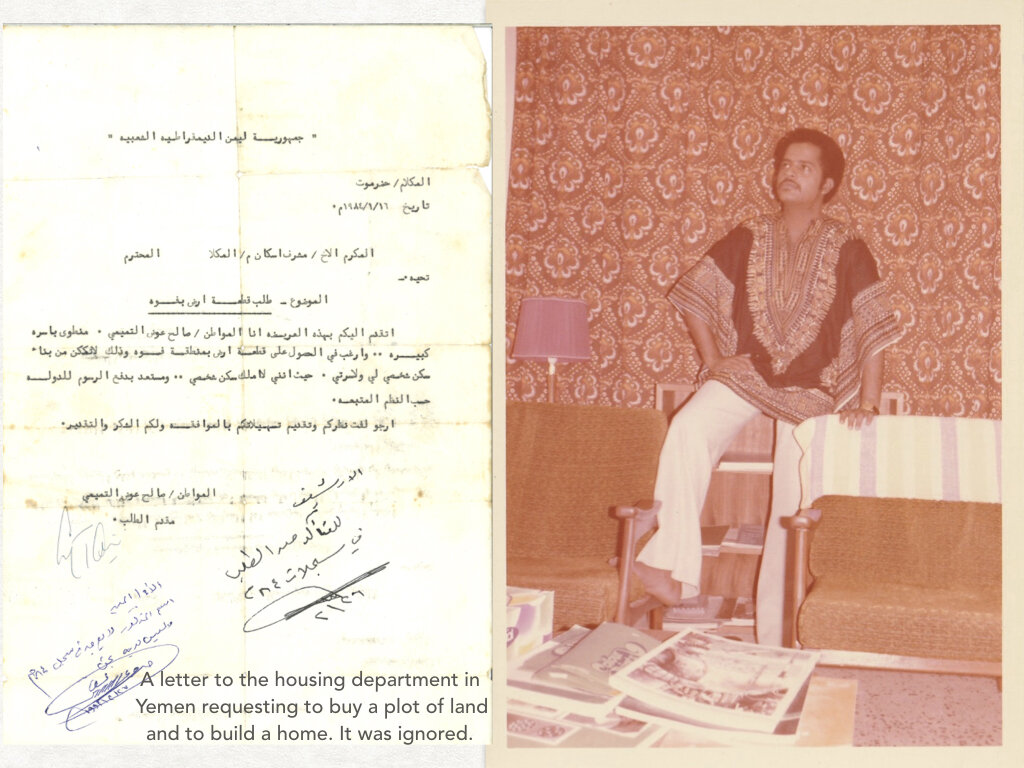 " جمهوريـــة اليمن الديمقراطيه الشعبيه "
المكلا / حضرموت
تاريخ
المكرم الاخ / مشرف اسكان م/ المكلا المحترم
تحيه
الموضوع ـ طلب قطعـــة ارض بخـــوه
اتقدم اليكم بهذه العريضه انا المواطن / صالح عوض التميمي ٠ منطوى باسره
كبيـــره ٠٠ وارغب في الحصول على قطعـة ارض بمنطقـة فـــوه وذلك لاتمكن من بناء
سكن شخصي لي ولاسرتي ٠ حيث انني لا املك سكن شخصي ٠٠ ومستعد بدفع الرسوم للدولـــه
حسب النظم المتبعـــه ٠
ارجو لفت نظركم وتقديم تسهيلاتكم بالموافقـــه ولكم الشكر والتقدير ٠
المواطن / صالح عوض التميمي
مقدم الطلب ٠
الارشيف
للتأكد من الطلب
في سجلات
A letter to the housing department in
Yemen requesting to buy a plot of land
and to build a home. It was ignored.